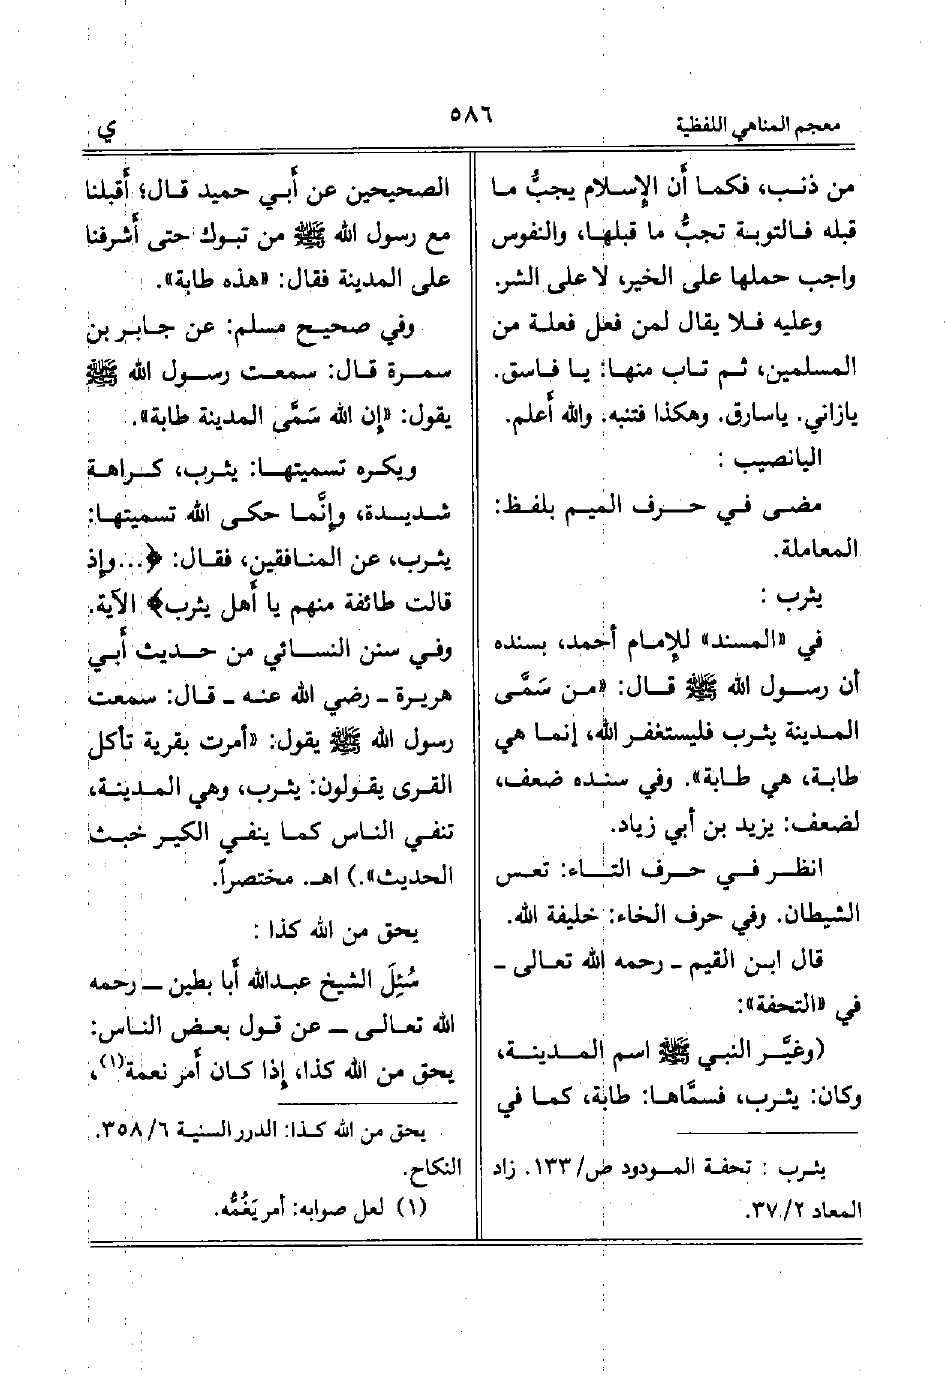 معجم المناهي اللفظية
٥٨٦
ي
من ذنب، فكما أن الإسلام يجبُّ ما
قبله فالتوبة تجبُّ ما قبلها، والنفوس
واجب حملها على الخير، لا على الشر.
وعليه فلا يقال لمن فعل فعلة من
المسلمين، ثم تاب منها: يا فاسق.
يازاني. ياسارق. وهكذا فتنبه. والله أعلم.
اليانصيب :
مضى في حرف الميم بلفظ:
المعاملة.
يثرب :
في «المسند» للإمام أحمد، بسنده
أن رسول الله ﷺ قال: «من سَمَّى
المدينة يثرب فليستغفر الله، إنما هي
طابة، هي طابة». وفي سنده ضعف،
لضعف: يزيد بن أبي زياد.
انظر في حرف التاء: تعس
الشيطان. وفي حرف الخاء: خليفة الله.
قال ابن القيم ـ رحمه الله تعالى ـ
في «التحفة»:
(وغيَّر النبي ﷺ اسم المدينة،
وكان: يثرب، فسمَّاها: طابة، كما في
يثرب : تحفة المودود ص/ ١٣٣. زاد
المعاد ٢/ ٣٧.
الصحيحين عن أبي حميد قال؛ أقبلنا
مع رسول الله ﷺ من تبوك حتى أشرفنا
على المدينة فقال: «هذه طابة».
وفي صحيح مسلم: عن جابر بن
سمرة قال: سمعت رسول الله ﷺ
يقول: «إن الله سَمَّى المدينة طابة».
ويكره تسميتها: يثرب، كراهة
شديدة، وإنَّما حكى الله تسميتها:
يثرب، عن المنافقين، فقال: ﴿...وإذ
قالت طائفة منهم يا أهل يثرب﴾ الآية.
وفي سنن النسائي من حديث أبي
هريرة ـ رضي الله عنه ـ قال: سمعت
رسول الله ﷺ يقول: «أمرت بقرية تأكل
القرى يقولون: يثرب، وهي المدينة،
تنفي الناس كما ينفي الكير خبث
الحديث».) اهـ. مختصراً.
يحق من الله كذا :
سُئِلَ الشيخ عبدالله أبا بطين ـ رحمه
الله تعالى ـ عن قول بعض الناس:
يحق من الله كذا، إذا كان أمر نعمة(١)،
يحق من الله كذا: الدرر السنية ٦/ ٣٥٨.
النكاح.
(١) لعل صوابه: أمر يَغُمُّه.